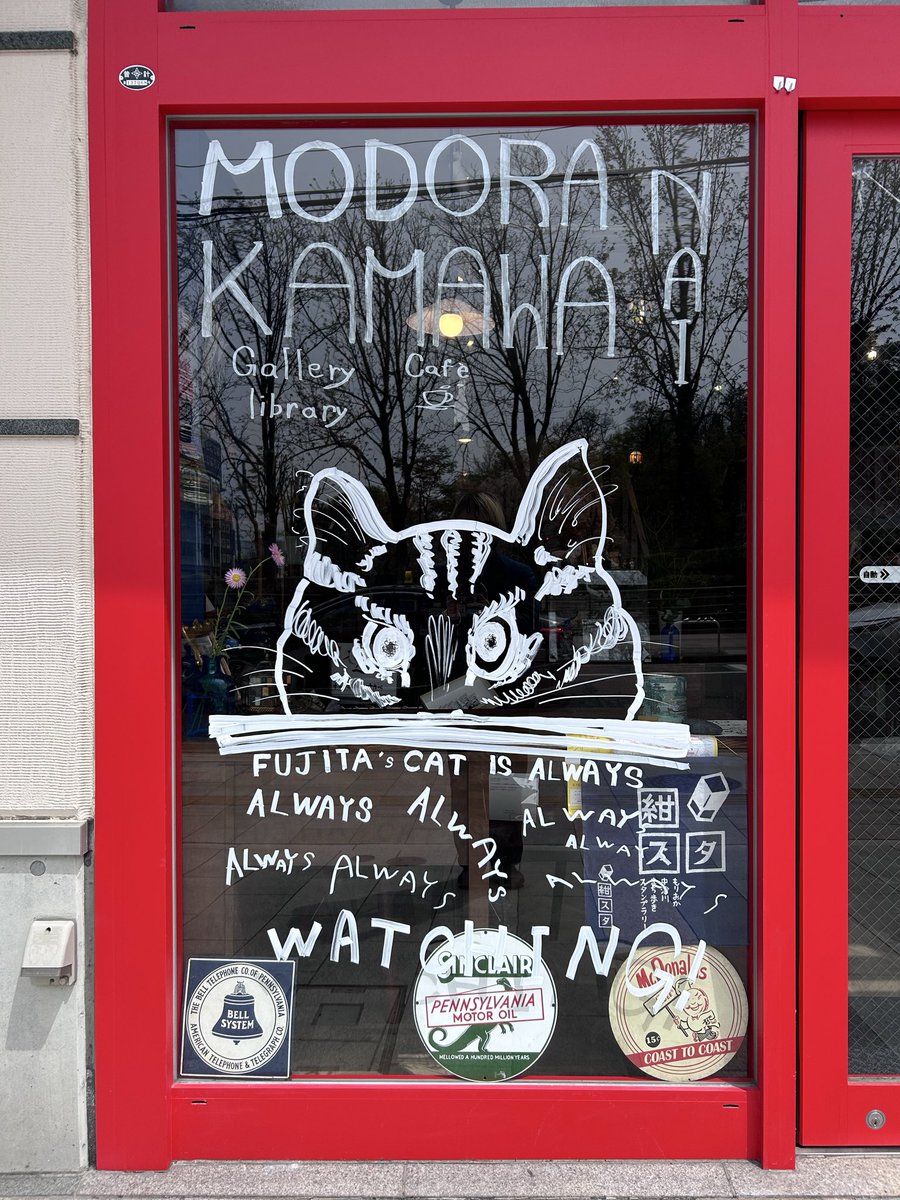 MODORA
NAI
KAMAWA
Gallery
library
Cafe
FUJITA's CAT IS ALWAYS
ALWAYS ALWAYS ALWAY
ALWAY
ALWAYS ALWAYS
WATCHING!
紺
スタ
もりおか
中津川
まち歩き
スタンプラリー
紺
スタ
THE BELL TELEPHONE CO. OF PENNSYLVANIA
BELL
SYSTEM
AMERICAN TELEPHONE & TELEGRAPH CO.
SINCLAIR
PENNSYLVANIA
MOTOR OIL
MELLOWED A HUNDRED MILLION YEARS
McDonald's
15¢
COAST TO COAST
自動